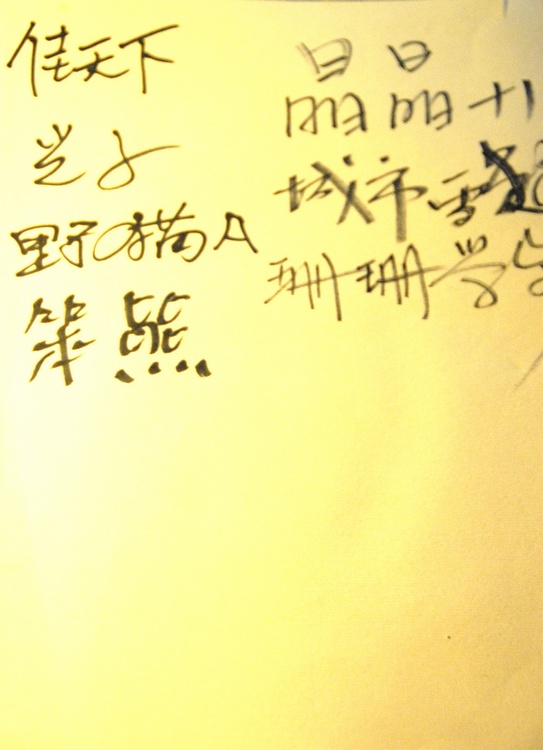 佳天下
兰子
野猫A
笨熊
晶晶十
城市雪
珊珊学